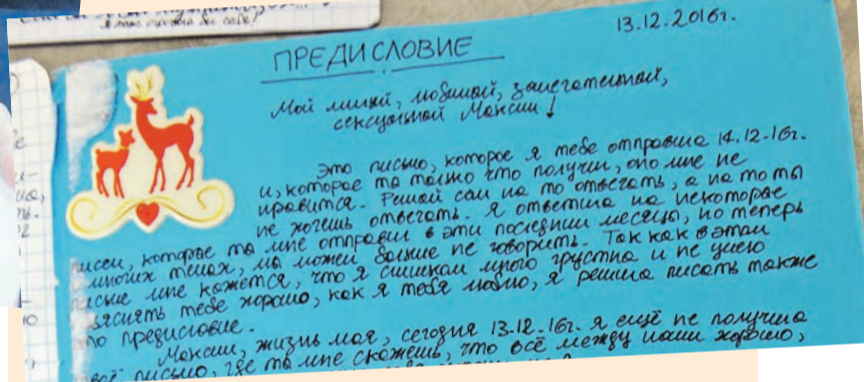 Я тоже
13.12.2016г.
ПРЕДИСЛОВИЕ
Мой милый, любимый, замечательный,
сексуальный Максим!
Это письмо, которое я тебе отправила 14.12.16г.
и, которое ты только что получил, оно мне не
нравится. Решай сам на то отвечать, а на то ты
не хочешь отвечать. Я ответила на некоторые
писем, которые ты мне отправил в эти последнии месецы, но теперь
многих темах, мы можем больше не говорить. Так как в этом
письме мне кажется, что я слишком много грустна и не умею
яснять тебе хорошо, как я тебя люблю, я решила писать также
то предисловие.
Максим, жизнь моя, сегодня 13.12.16г. я ещё не получила
твоё письмо, где ты мне скажешь, что всё между нами хорошо,